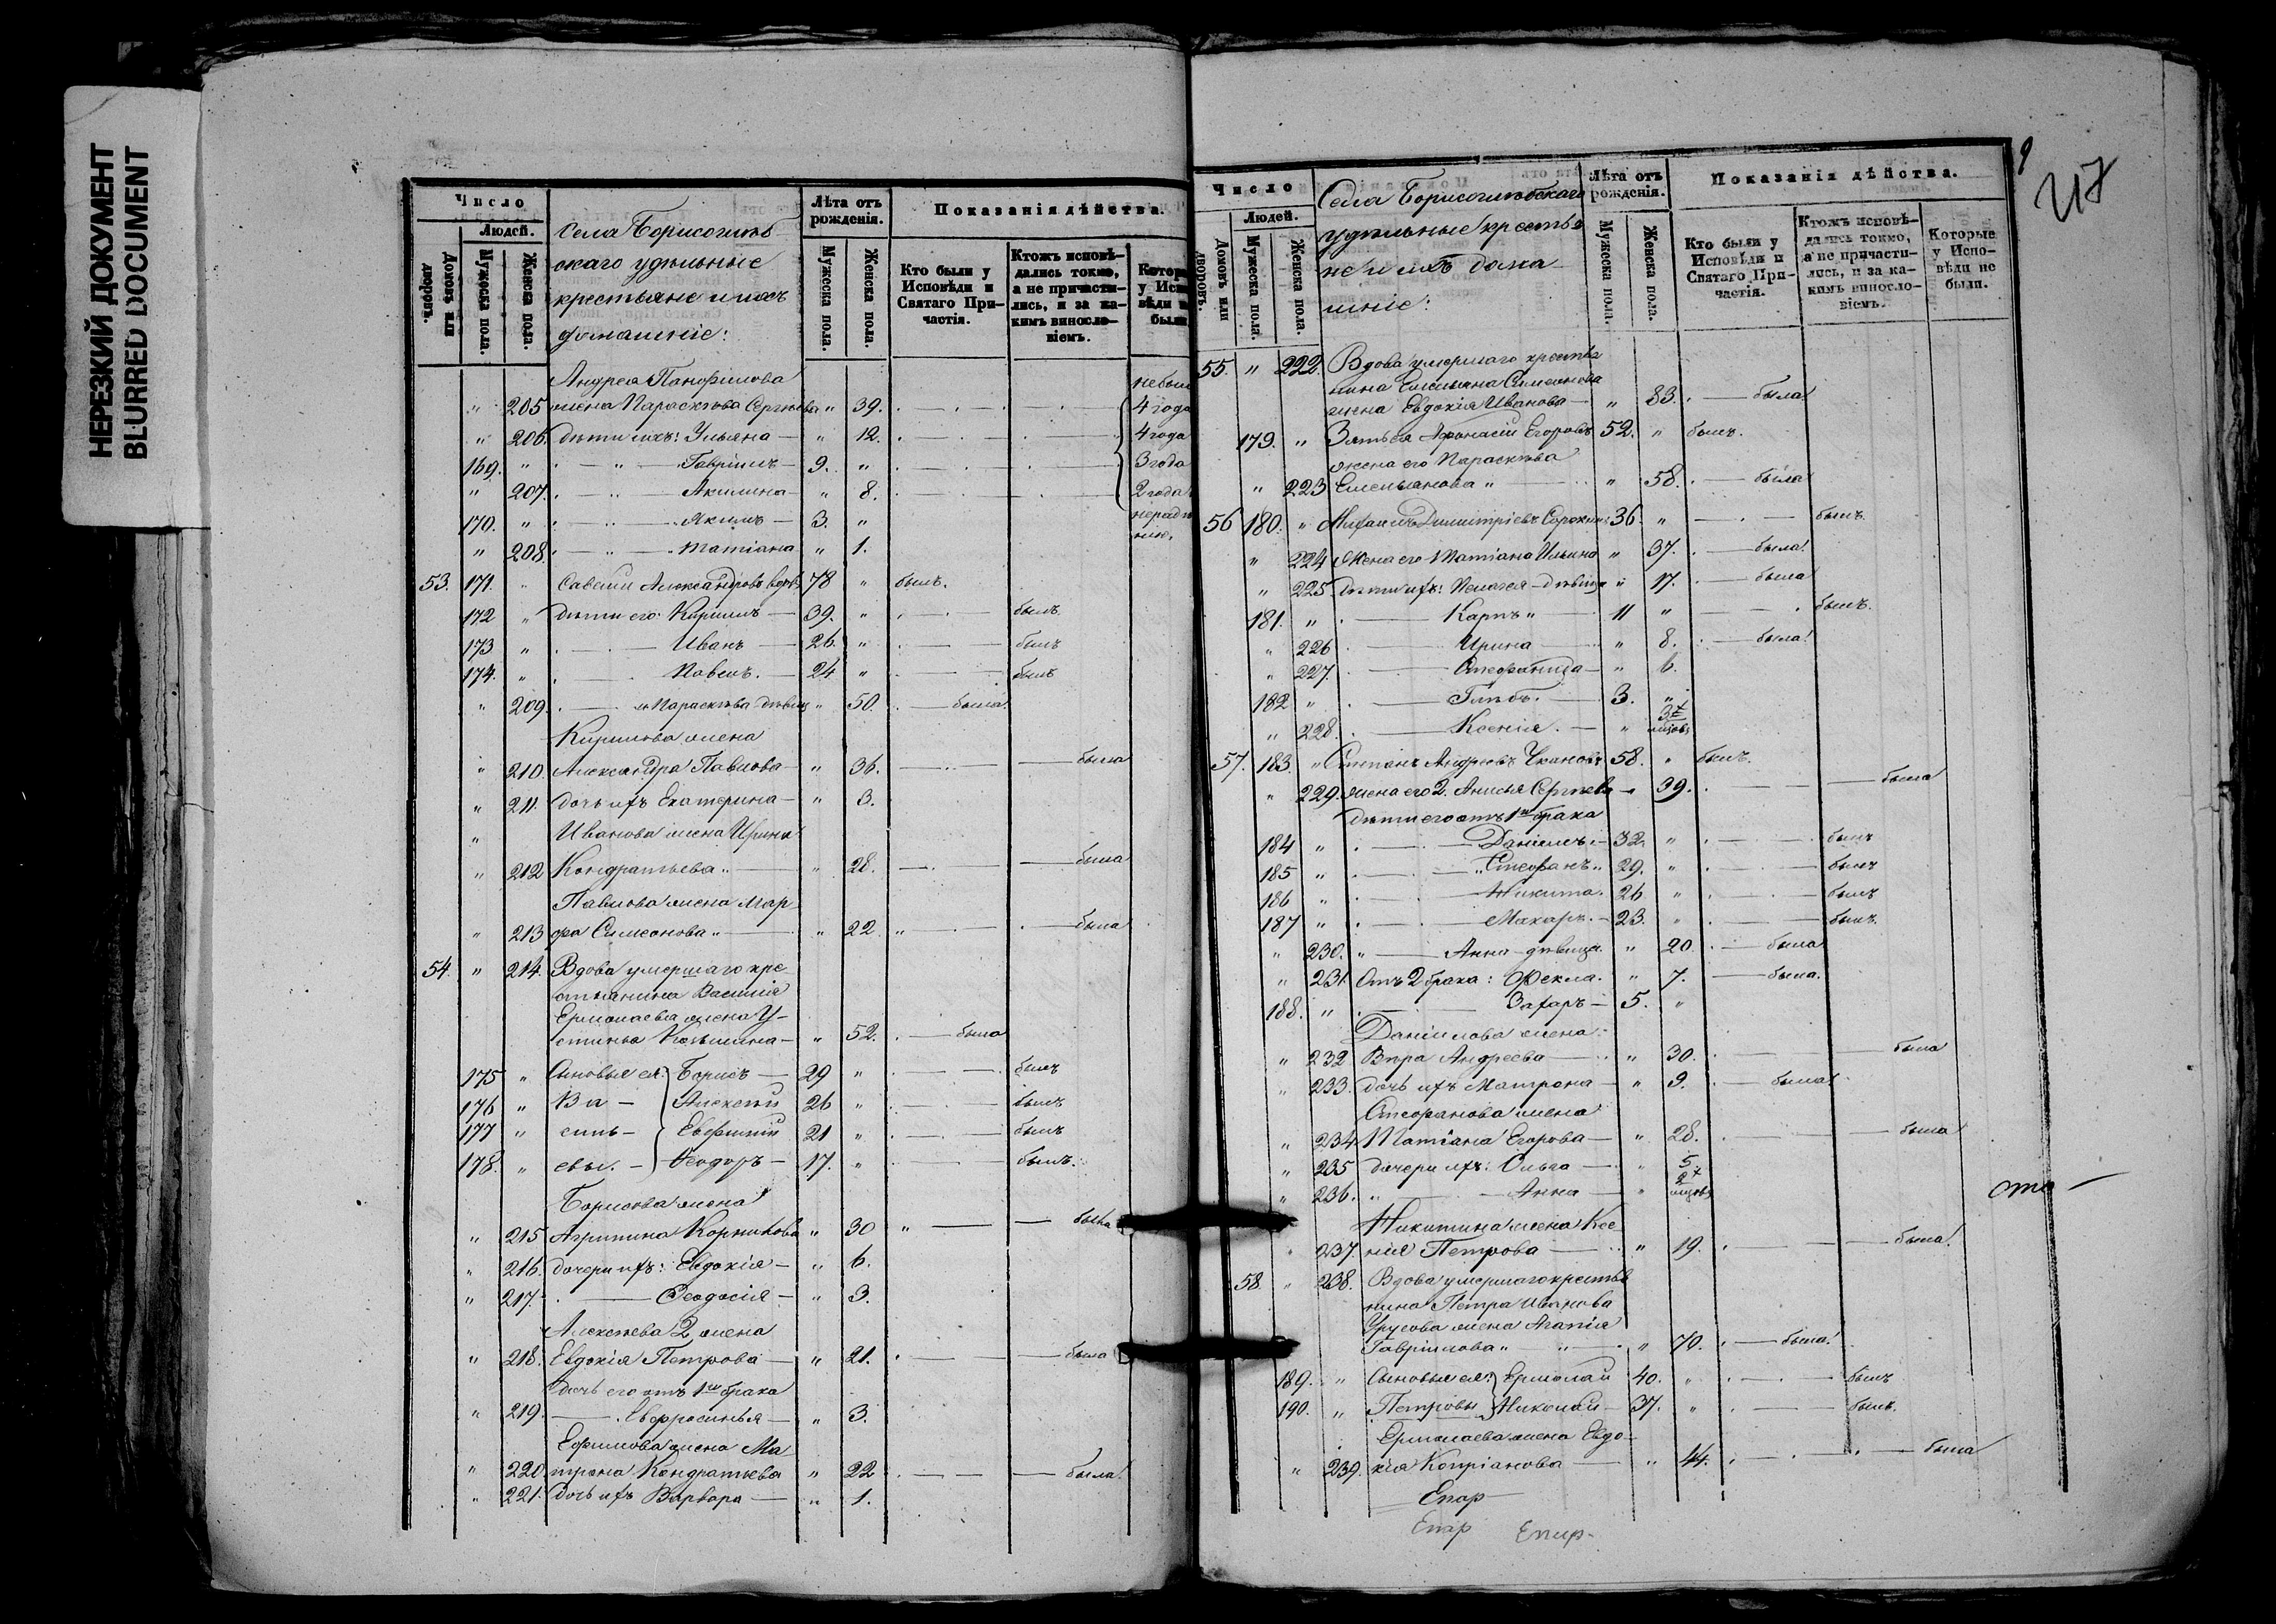 НЕРЕЗКИЙ ДОКУМЕНТ
BLURRED DOCUMENT
Число
Людей.
Домовъ или дворовъ.
Мужеска пола.
Женска пола.
Села Борисоглѣб-
скаго удѣльные
крестьяне и ихъ
домашніе:
Лѣта отъ рожденія.
Мужеска пола.
Женска пола.
Показанія дѣйства.
Кто были у Исповѣди и Святаго Причастія.
Ктожъ исповѣдались токмо, а не причастились, и за какимъ винословіемъ.
Андрея Панфилова
" 205 жена Параскѣва Сергѣева " 39. 4 года
" 206. дѣти ихъ: Ульяна — " 12. 4 года
169. " " Гавріилъ — 9. " 3 года
" 207. " Акилина — " 8. 2 года
170. " " Якимъ — 3. "
" 208. " Татіана " 1.
53. 171. " Савелій Александровъ вдовъ 78 " былъ.
172 " дѣти его: Кириллъ — 39. " былъ.
173 " Иванъ — 26. " былъ
174. " Павелъ. — 24 " былъ
" 209. и Параскѣва дѣвица " 50. была.
Кирилова жена
" 210. Александра Павлова — " 36. была
" 211. дочь ихъ Екатерина — " 3.
" Иванова жена Ирина
" 212 Кондратьева " " 28. была
Павлова жена Мар-
" 213 фа Симеонова " " 22. была
54. " 214. Вдова умершаго кре-
стьянина Василія
Ермолаева жена У-
стинья Козьмина — " 52. была
175 " Сыновья ея: Борисъ — 29 " былъ
176 " Ва — Алексѣй 26 " былъ
177 " силь — 21 " былъ
178. " евы. — Ѳеодоръ — 17. " былъ.
Борисова жена
" 215 Агрипина Корнилова " 30 была
" 216. дочери ихъ: Евдокія — " 6.
" 217. Ѳеодосія — " 3.
Алексѣева 2 жена
" 218. Евдокія Петрова — " 21. была
Дочь его отъ 1го брака
" 219. Евфросинья — " 3.
Ефимова жена Ма
" 220. трона Кондратьева " 22 была.
" 221. дочь ихъ Варвара — " 1.
9
Число
Людей.
Домовъ или дворовъ.
Мужеска пола.
Женска пола.
Села Борисоглѣбскаго
удѣльные крестья
не и ихъ дома
шніе:
Лѣта отъ рожденія.
Мужеска пола.
Женска пола.
Показанія дѣйства.
Кто были у Исповѣди и Святаго Причастія.
Ктожъ исповѣдались токмо, а не причастились, и за какимъ винословіемъ.
Которые у Исповѣди не были.
55. " 222. Вдова умершаго крестья
нина Емельяна Симеонова
жена Евдокія Иванова — " 83. была
179. " Зять ея Афонасій Егоровъ 52. " былъ.
жена его Параскѣва
" 223 Емельянова " " 58. была
56 180. " Михаилъ Димитріевъ Сорокинъ 36. " былъ.
" 224 Жена его Татіана Ильина " 37. была.
" 225. Дѣти ихъ: Пелагея — дѣвица " 17. была
181. " Карпъ " 11 " былъ.
" 226 Ирина " 8. была.
" 227. Стефанида — " 6.
182 " Глѣбъ. — 3. "
" 228. Ксенія. — " 3х мѣсяц.
57. 183. " Степанъ Андреевъ Чкановъ 58. " былъ.
" 229. жена его 2. Анисья Сергѣева — 39. была
дѣти его отъ 1го брака
184 " Даніилъ — 32. " былъ
185 " Стефанъ " 29. " былъ
186 " Никита. 26 " былъ
187 " Макаръ. — 23. " былъ.
" 230. " Анна дѣвица. " 20. была
" 231. Отъ 2 брака: Ѳекла. " 7. была.
188. " Захаръ — 5. "
Даніилова жена
" 232 Вѣра Андреева — " 30. была
" 233. дочь ихъ Матрона — " 9. была.
Стефанова жена
" 234 Татіана Егорова — " 28. была
" 235 дочери ихъ: Ольга — " 5.
" 236. " Анна — " 2х
Никитина жена Ксе
" 237. нія Петрова — " 19. была.
58. " 238. Вдова умершаго крестья
нина Петра Иванова
Урусова жена Агапія
Гавріилова " " 70. была.
189. " Сыновья ея: Ермолай 40. " былъ
190. " Петровы Николай — 37. " былъ.
Ермолаева жена Евдо-
" 239. кія Кипріанова — " 44. была
Епар
Епар Епар-